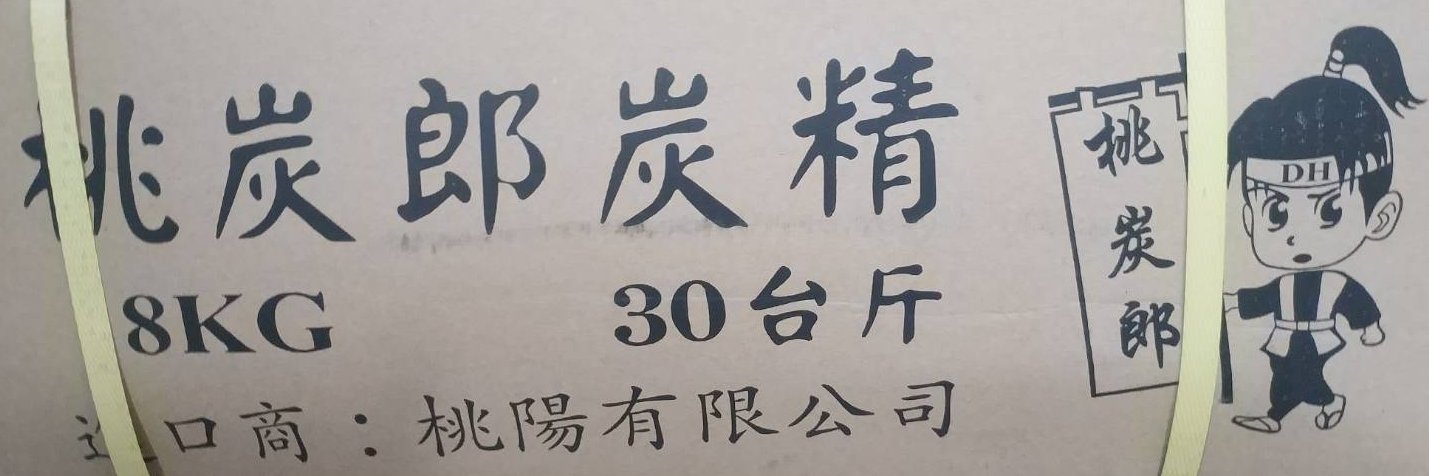 桃炭郎炭精
8KG 30台斤
進口商：桃陽有限公司
桃炭郎
DH